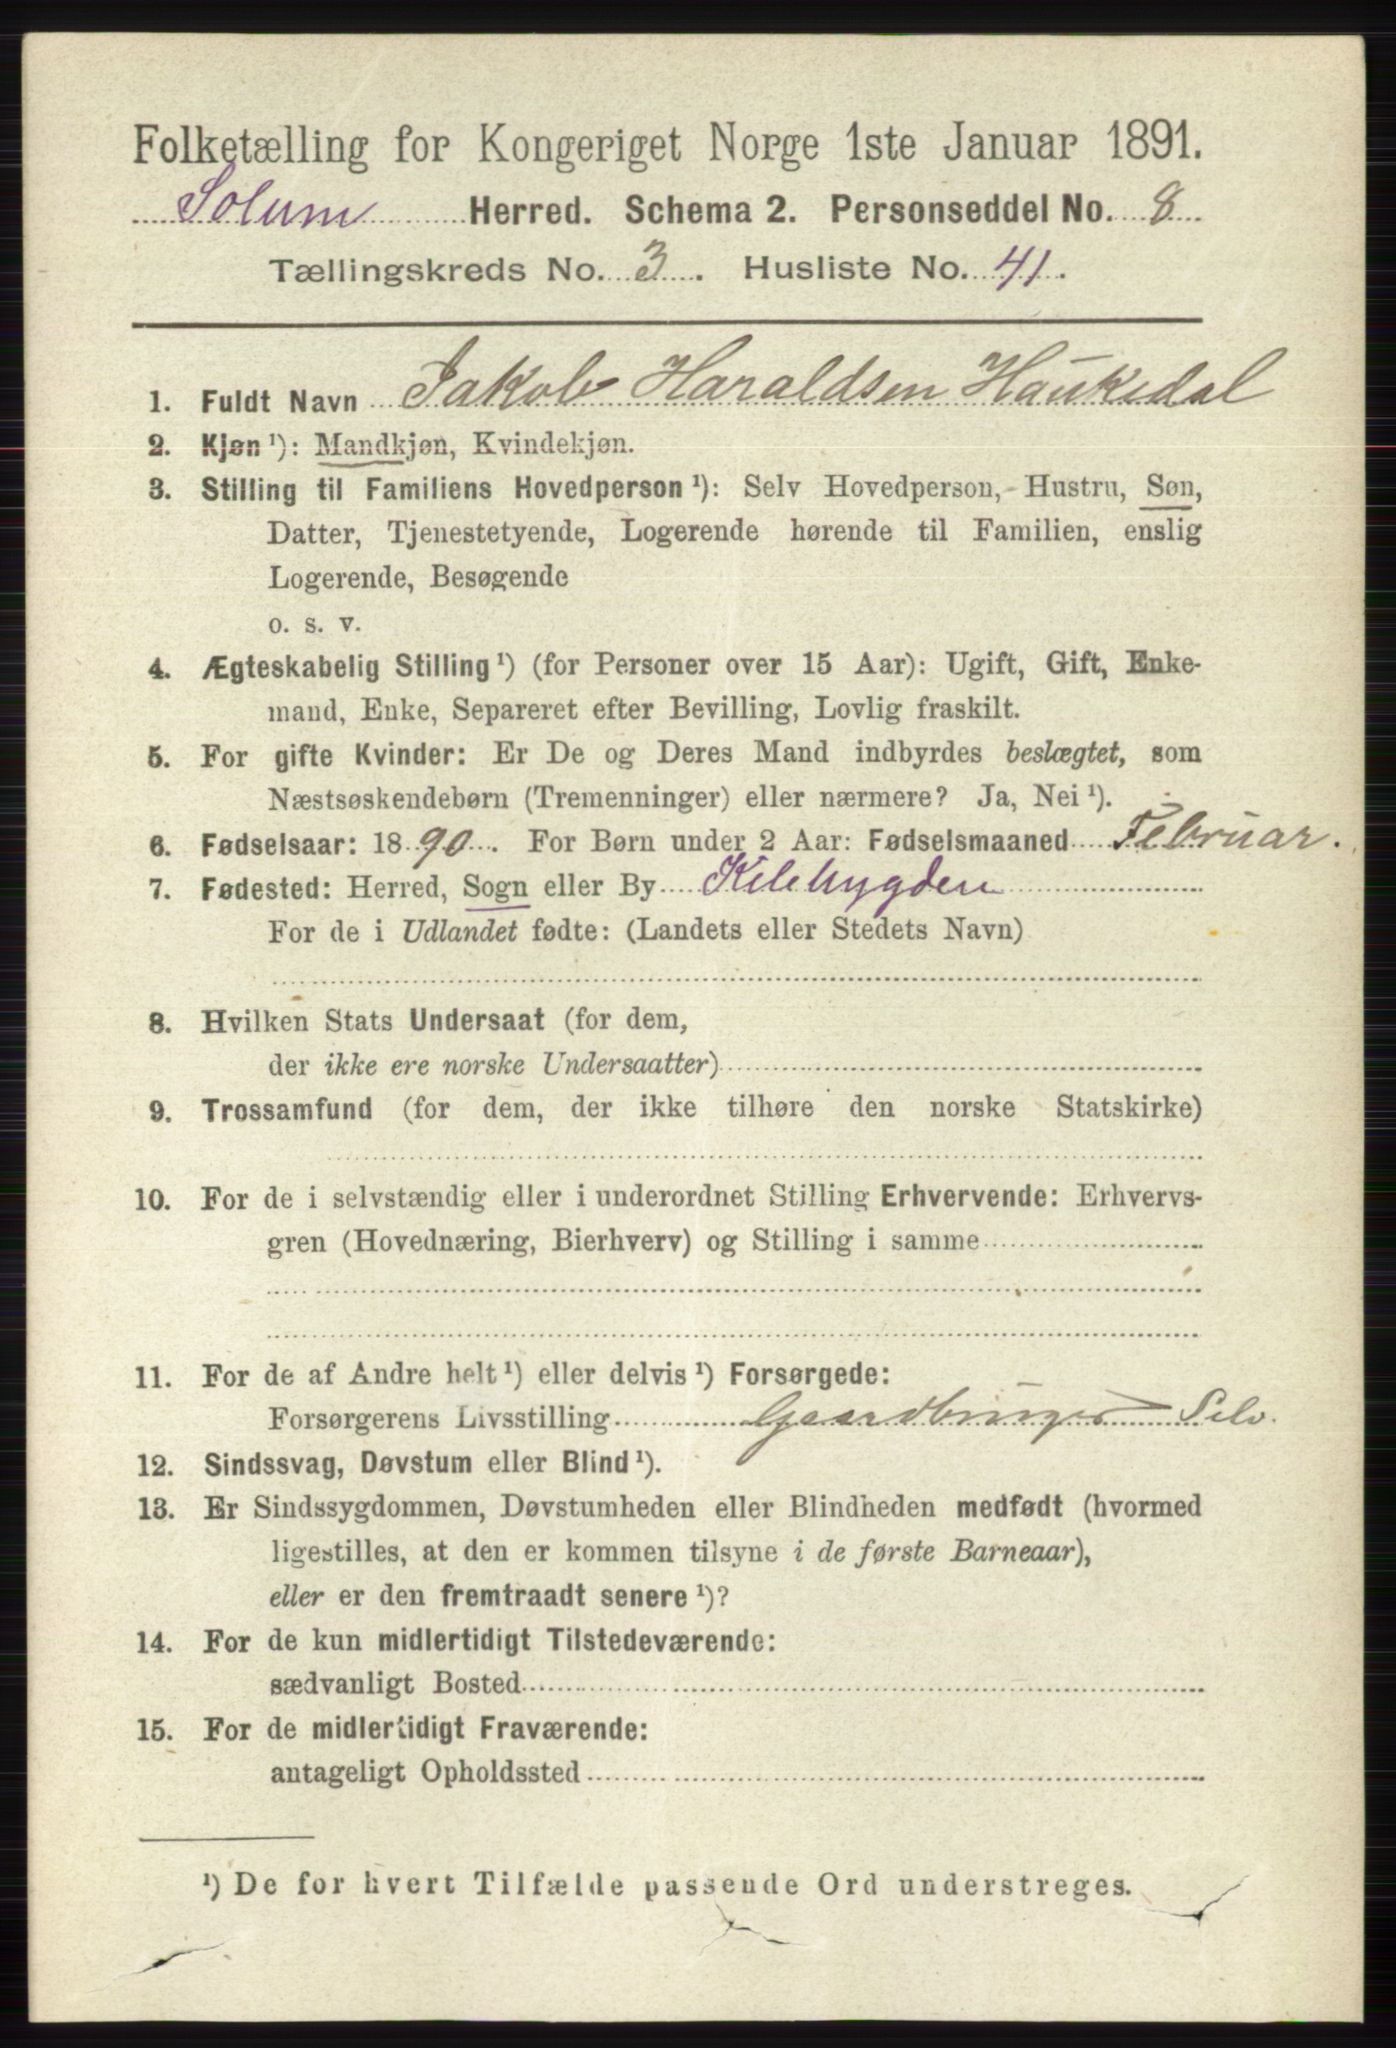 Folketælling for Kongeriget Norge 1ste Januar 1891.
Solum Herred. Schema 2. Personseddel No. 8
Tællingskreds No. 3. Husliste No. 41.
1. Fuldt Navn Jakob Haraldsen Haukedal
2. Kjøn ¹): Mandkjøn, Kvindekjøn.
3. Stilling til Familiens Hovedperson ¹): Selv Hovedperson, Hustru, Søn,
Datter, Tjenestetyende, Logerende hørende til Familien, enslig
Logerende, Besøgende
o. s. v.
4. Ægteskabelig Stilling ¹) (for Personer over 15 Aar): Ugift, Gift, Enke-
mand, Enke, Separeret efter Bevilling, Lovlig fraskilt.
5. For gifte Kvinder: Er De og Deres Mand indbyrdes beslægtet, som
Næstsøskendebørn (Tremenninger) eller nærmere? Ja, Nei ¹).
6. Fødselsaar: 1890. For Børn under 2 Aar: Fødselsmaaned Februar.
7. Fødested: Herred, Sogn eller By Kilebygden
For de i Udlandet fødte: (Landets eller Stedets Navn)
8. Hvilken Stats Undersaat (for dem,
der ikke ere norske Undersaatter)
9. Trossamfund (for dem, der ikke tilhøre den norske Statskirke)
10. For de i selvstændig eller i underordnet Stilling Erhvervende: Erhvervs-
gren (Hovednæring, Bierhverv) og Stilling i samme
11. For de af Andre helt ¹) eller delvis ¹) Forsørgede:
Forsørgerens Livsstilling Gaardbruger Selv.
12. Sindssvag, Døvstum eller Blind ¹).
13. Er Sindssygdommen, Døvstumheden eller Blindheden medfødt (hvormed
ligestilles, at den er kommen tilsyne i de første Barneaar),
eller er den fremtraadt senere ¹)?
14. For de kun midlertidigt Tilstedeværende:
sædvanligt Bosted
15. For de midlertidigt Fraværende:
antageligt Opholdssted
¹) De for hvert Tilfælde passende Ord understreges.